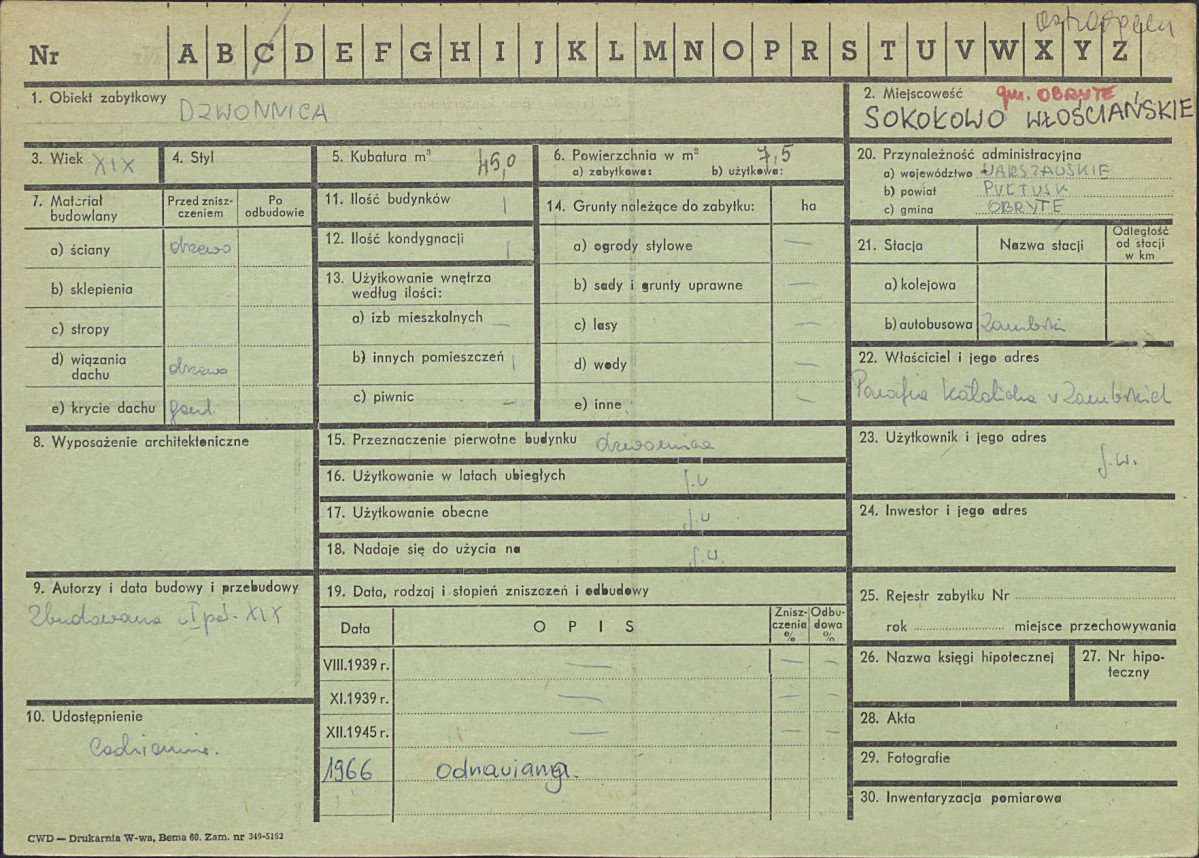 Nr A B C D E F G H I J K L M N O P R S T U V W X Y Z
1. Obiekt zabytkowy DZWONNICA
2. Miejscowość gm. OBRYTE
SOKOŁOWO WŁOŚCIAŃSKIE
3. Wiek XIX
4. Styl
5. Kubatura m³ 45,0
6. Powierzchnia w m² 7,5
a) zabytkowa: b) użytkowa:
7. Materiał budowlany
Przed zniszczeniem
Po odbudowie
a) ściany drzewo
b) sklepienia
c) stropy
d) wiązania dachu drzewo
e) krycie dachu gont
8. Wyposażenie architektoniczne
9. Autorzy i data budowy i przebudowy
Zbudowana w I poł. XIX
10. Udostępnienie
Codziennie.
11. Ilość budynków 1
12. Ilość kondygnacji 1
13. Użytkowanie wnętrza
według ilości:
a) izb mieszkalnych —
b) innych pomieszczeń 1
c) piwnic —
14. Grunty należące do zabytku: ha
a) ogrody stylowe —
b) sady i grunty uprawne —
c) lasy —
d) wody —
e) inne —
15. Przeznaczenie pierwotne budynku dzwonnica
16. Użytkowanie w latach ubiegłych j.w
17. Użytkowanie obecne j.w
18. Nadaje się do użycia na j.w.
19. Data, rodzaj i stopień zniszczeń i odbudowy
Data OPIS Zniszczenia % Odbudowa %
VIII.1939 r. — — —
XI.1939 r. — — —
XII.1945 r. — — —
1966 odnawiana.
20. Przynależność administracyjna
a) województwo WARSZAWSKIE
b) powiat PUŁTUSK
c) gmina OBRYTE
21. Stacja Nazwa stacji Odległość od stacji w km
a) kolejowa
b) autobusowa Zambski
22. Właściciel i jego adres
Parafia Katolicka w Zambskich
23. Użytkownik i jego adres
j.w.
24. Inwestor i jego adres
25. Rejestr zabytku Nr
rok miejsce przechowywania
26. Nazwa księgi hipotecznej
27. Nr hipoteczny
28. Akta
29. Fotografie
30. Inwentaryzacja pomiarowa
CWD — Drukarnia W-wa, Bema 60. Zam. nr 349-5162